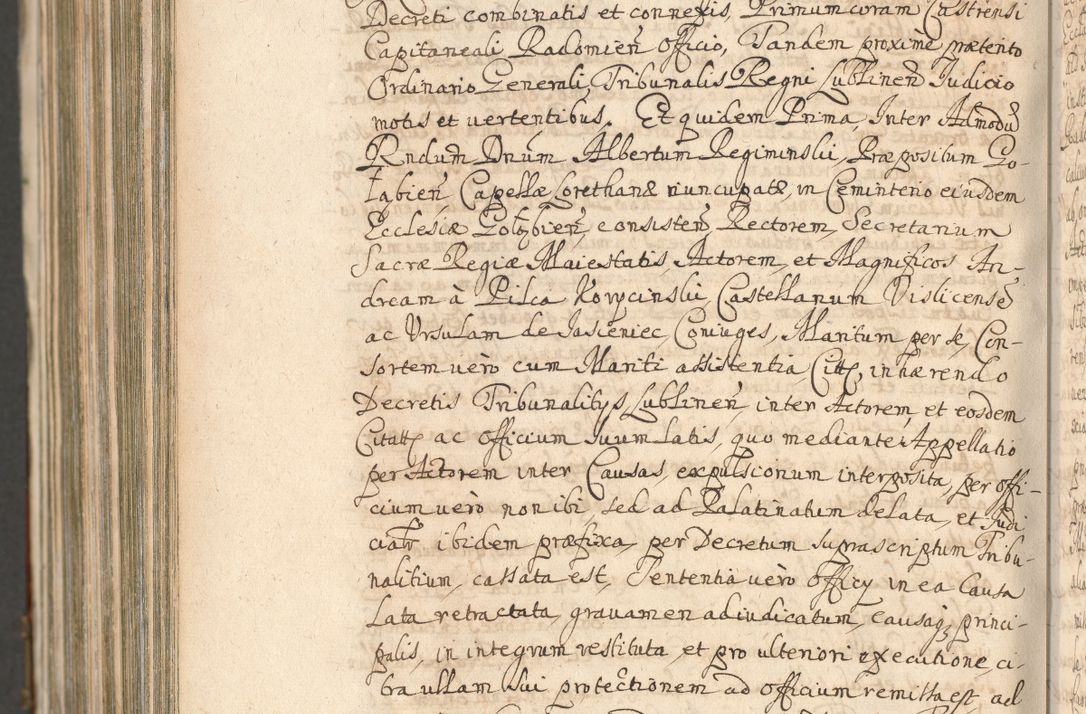 Decreti combinatis et connexis, Primum coram Castrensi
Capitaneali Radomieñ officio, Tandem proxime prætento
Ordinario Generali, Tribunalis Regni Lublineñ Iudicio
motis et vertentibus. Et quidem Prima, Inter Admodũ
Rndum Dnũm Albertum Regiminski, Præpositum Go-
łabień Capellæ Lorethanæ nuncupatæ in Ceminterio eiusdem
Ecclesiæ Gołębień, consisteñ, Rectorem, Secretarium
Sacræ Regiæ Maiestatis, Actorem, et Magnificos An-
dream à Pilca Korycinski, Castellanum Vislicensẽ
ac Ursulam de Iasieniec, Coniuges, Maritum per se, Con-
sortem vero cum Mariti assistentia, Citt, inhærendo
Decretis Tribunalitys Lublineñ, inter Actorem, et eosdem
Citatt, ac officium suum latis, quo mediante Appellatio
per Actorem inter Causas, expulsionum interposita, per offi-
cium vero non ibi, sed ad Palatinatum delata, et Iudi
ciatr ibidem præfixa, per Decretum suprascriptum Tribu-
nalitium, cassata est, Sententia vero Officy in ea Causa
Lata retractata, gravamen adiudicatum, causaq princi-
palis, in integrum restituta, et pro ulteriori executione, ci-
tra ullam sui protectionem ad officium remissa est, ad